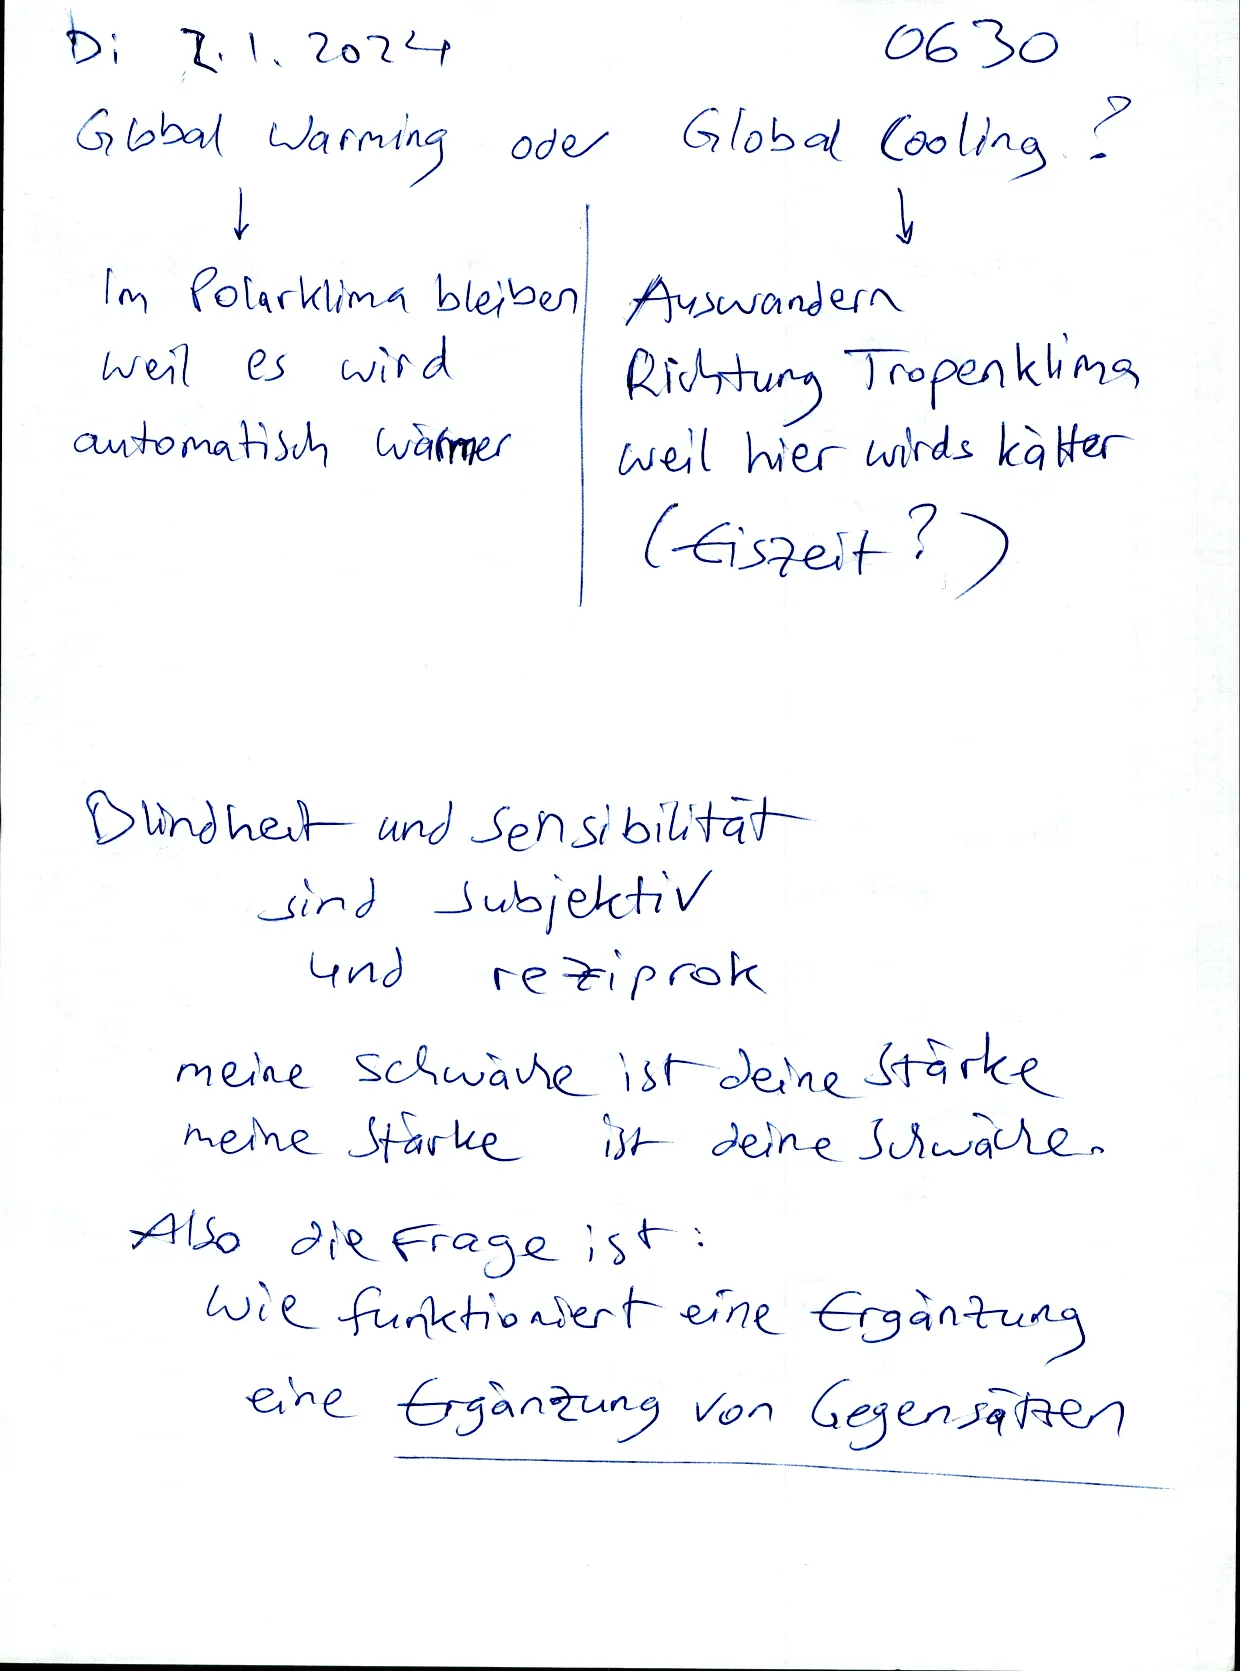 Di 2.1.2024 0630
Global Warming oder Global Cooling?
↓ ↓
Im Polarklima bleiben
weil es wird
automatisch wärmer
Auswandern
Richtung Tropenklima
weil hier wirds kälter
(Eiszeit?)
Blindheit und Sensibilität
sind subjektiv
und reziprok
meine Schwäche ist deine Stärke
meine Stärke ist deine Schwäche.
Also die Frage ist:
Wie funktioniert eine Ergänzung
eine Ergänzung von Gegensätzen